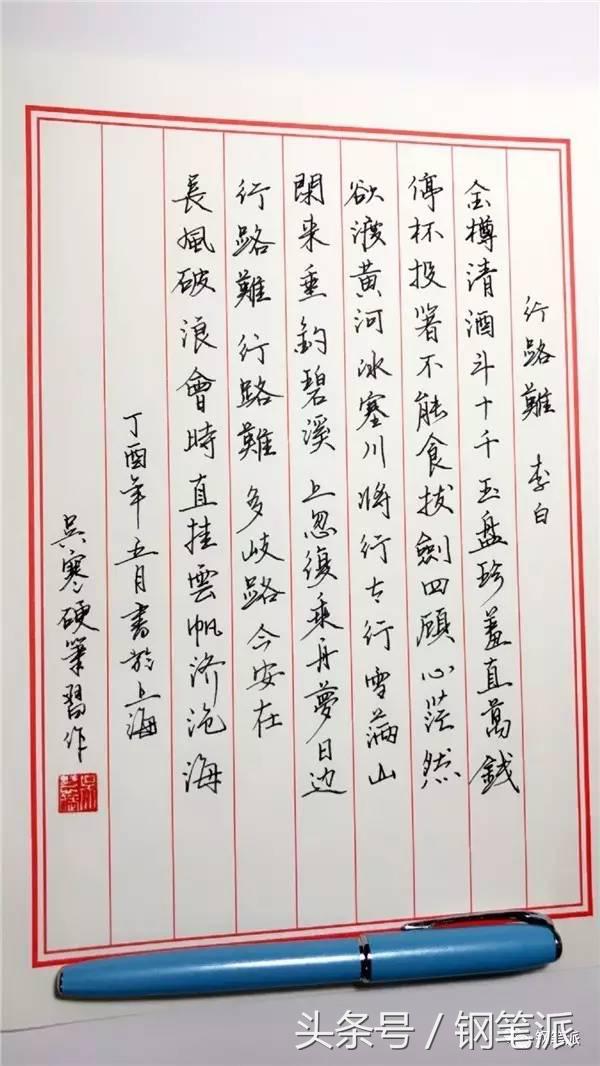 行路難 李白
金樽清酒斗十千玉盤珍羞直萬錢
停杯投箸不能食拔劍四顧心茫然
欲渡黃河冰塞川将行太行雪满山
閑来垂釣碧溪上忽復乘舟夢日边
行路難行路難多岐路今安在
長風破浪會時直挂雲帆济沧海
丁酉年五月書於上海
吳寒硬筆習作
头条号 / 钢笔派
钢笔派